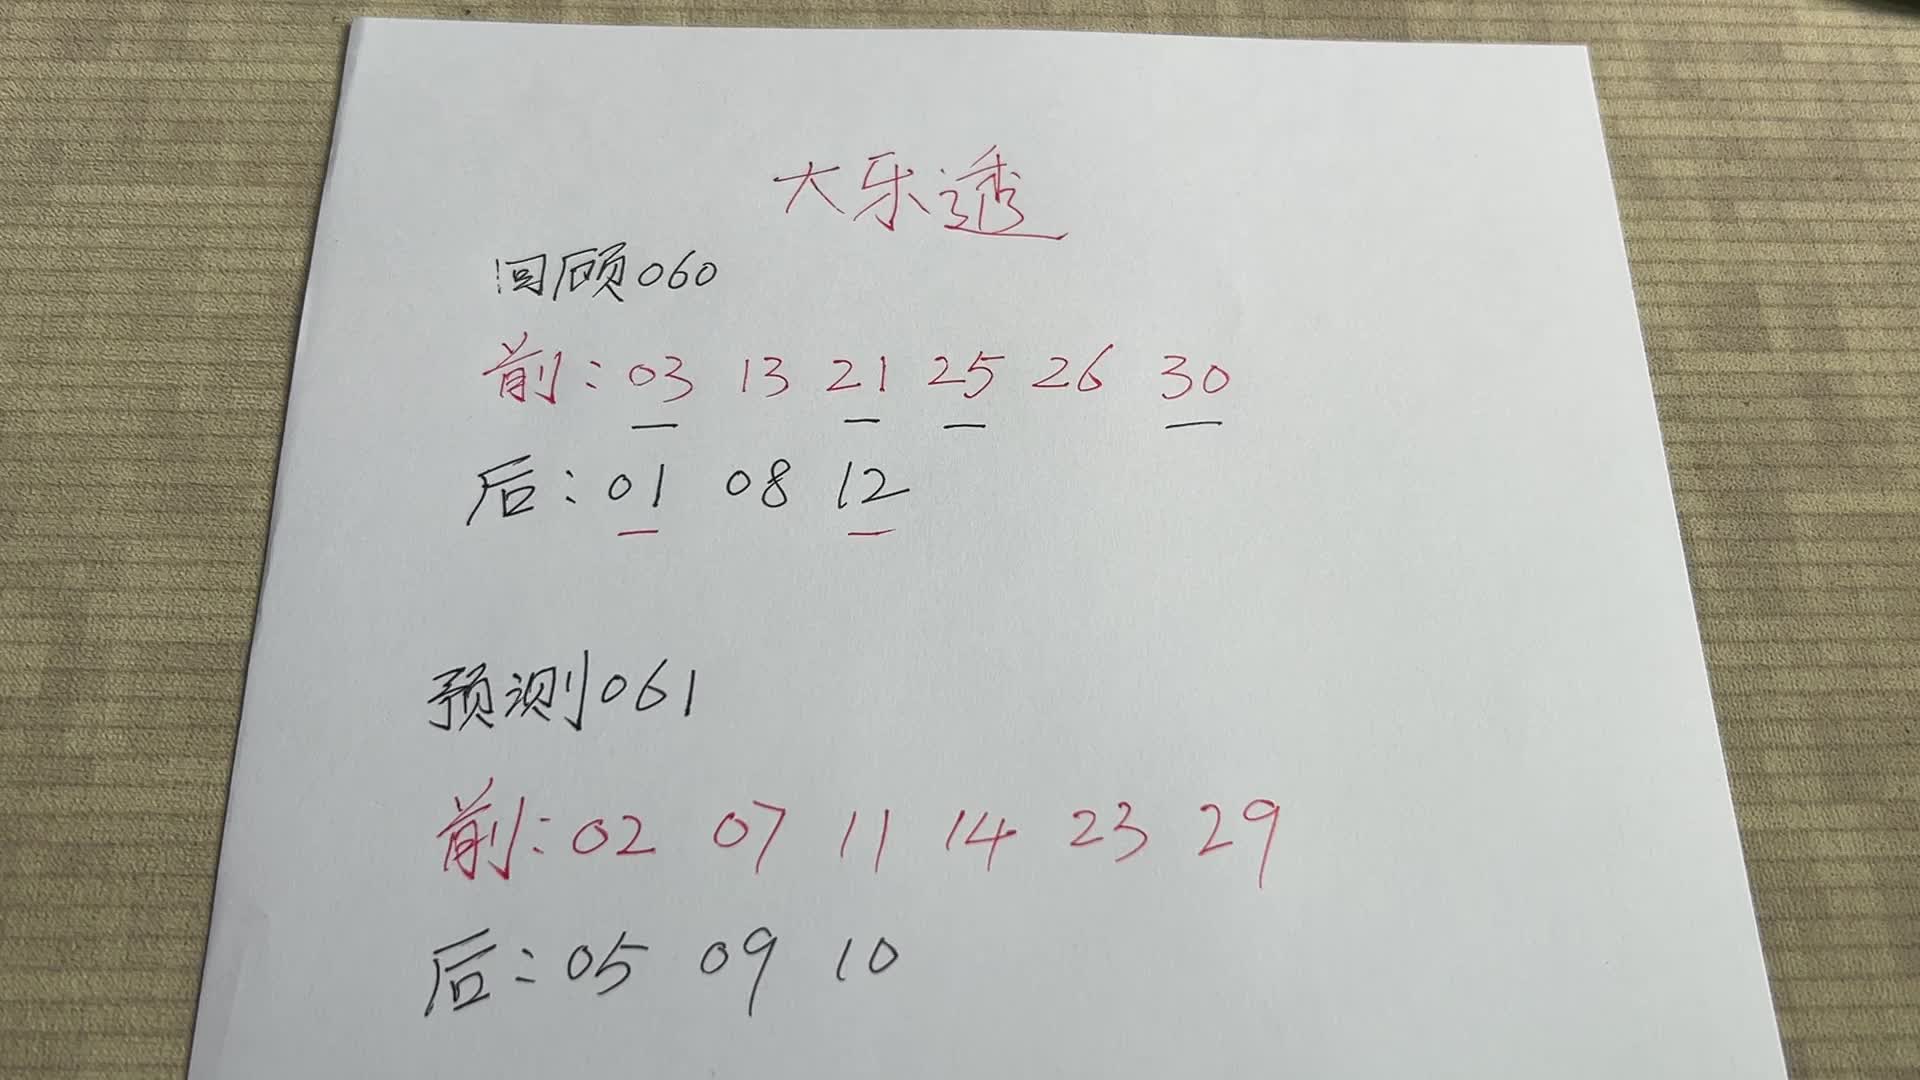 大乐透
回顾060
前:03 13 21 25 26 30
后:01 08 12
预测061
前:02 07 11 14 23 29
后:05 09 10